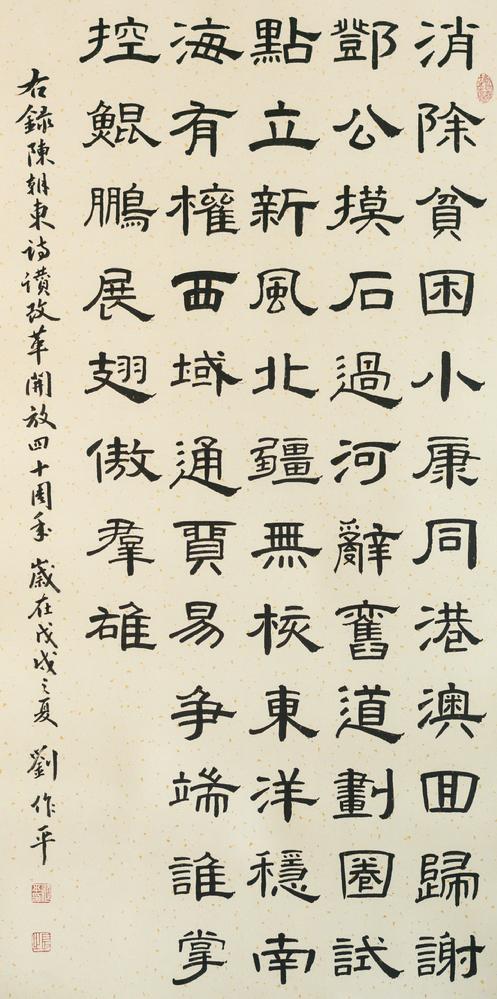 消除貧困小康同港澳囬歸謝
鄧公摸石過河辭舊道劃圈試
點立新風北疆無核東洋穩南
海有權西域通貿易争端誰掌
控鯤鵬展翅傲羣雄
右録陳朝東诗讚改革開放四十周年 歲在戊戌之夏 劉作平